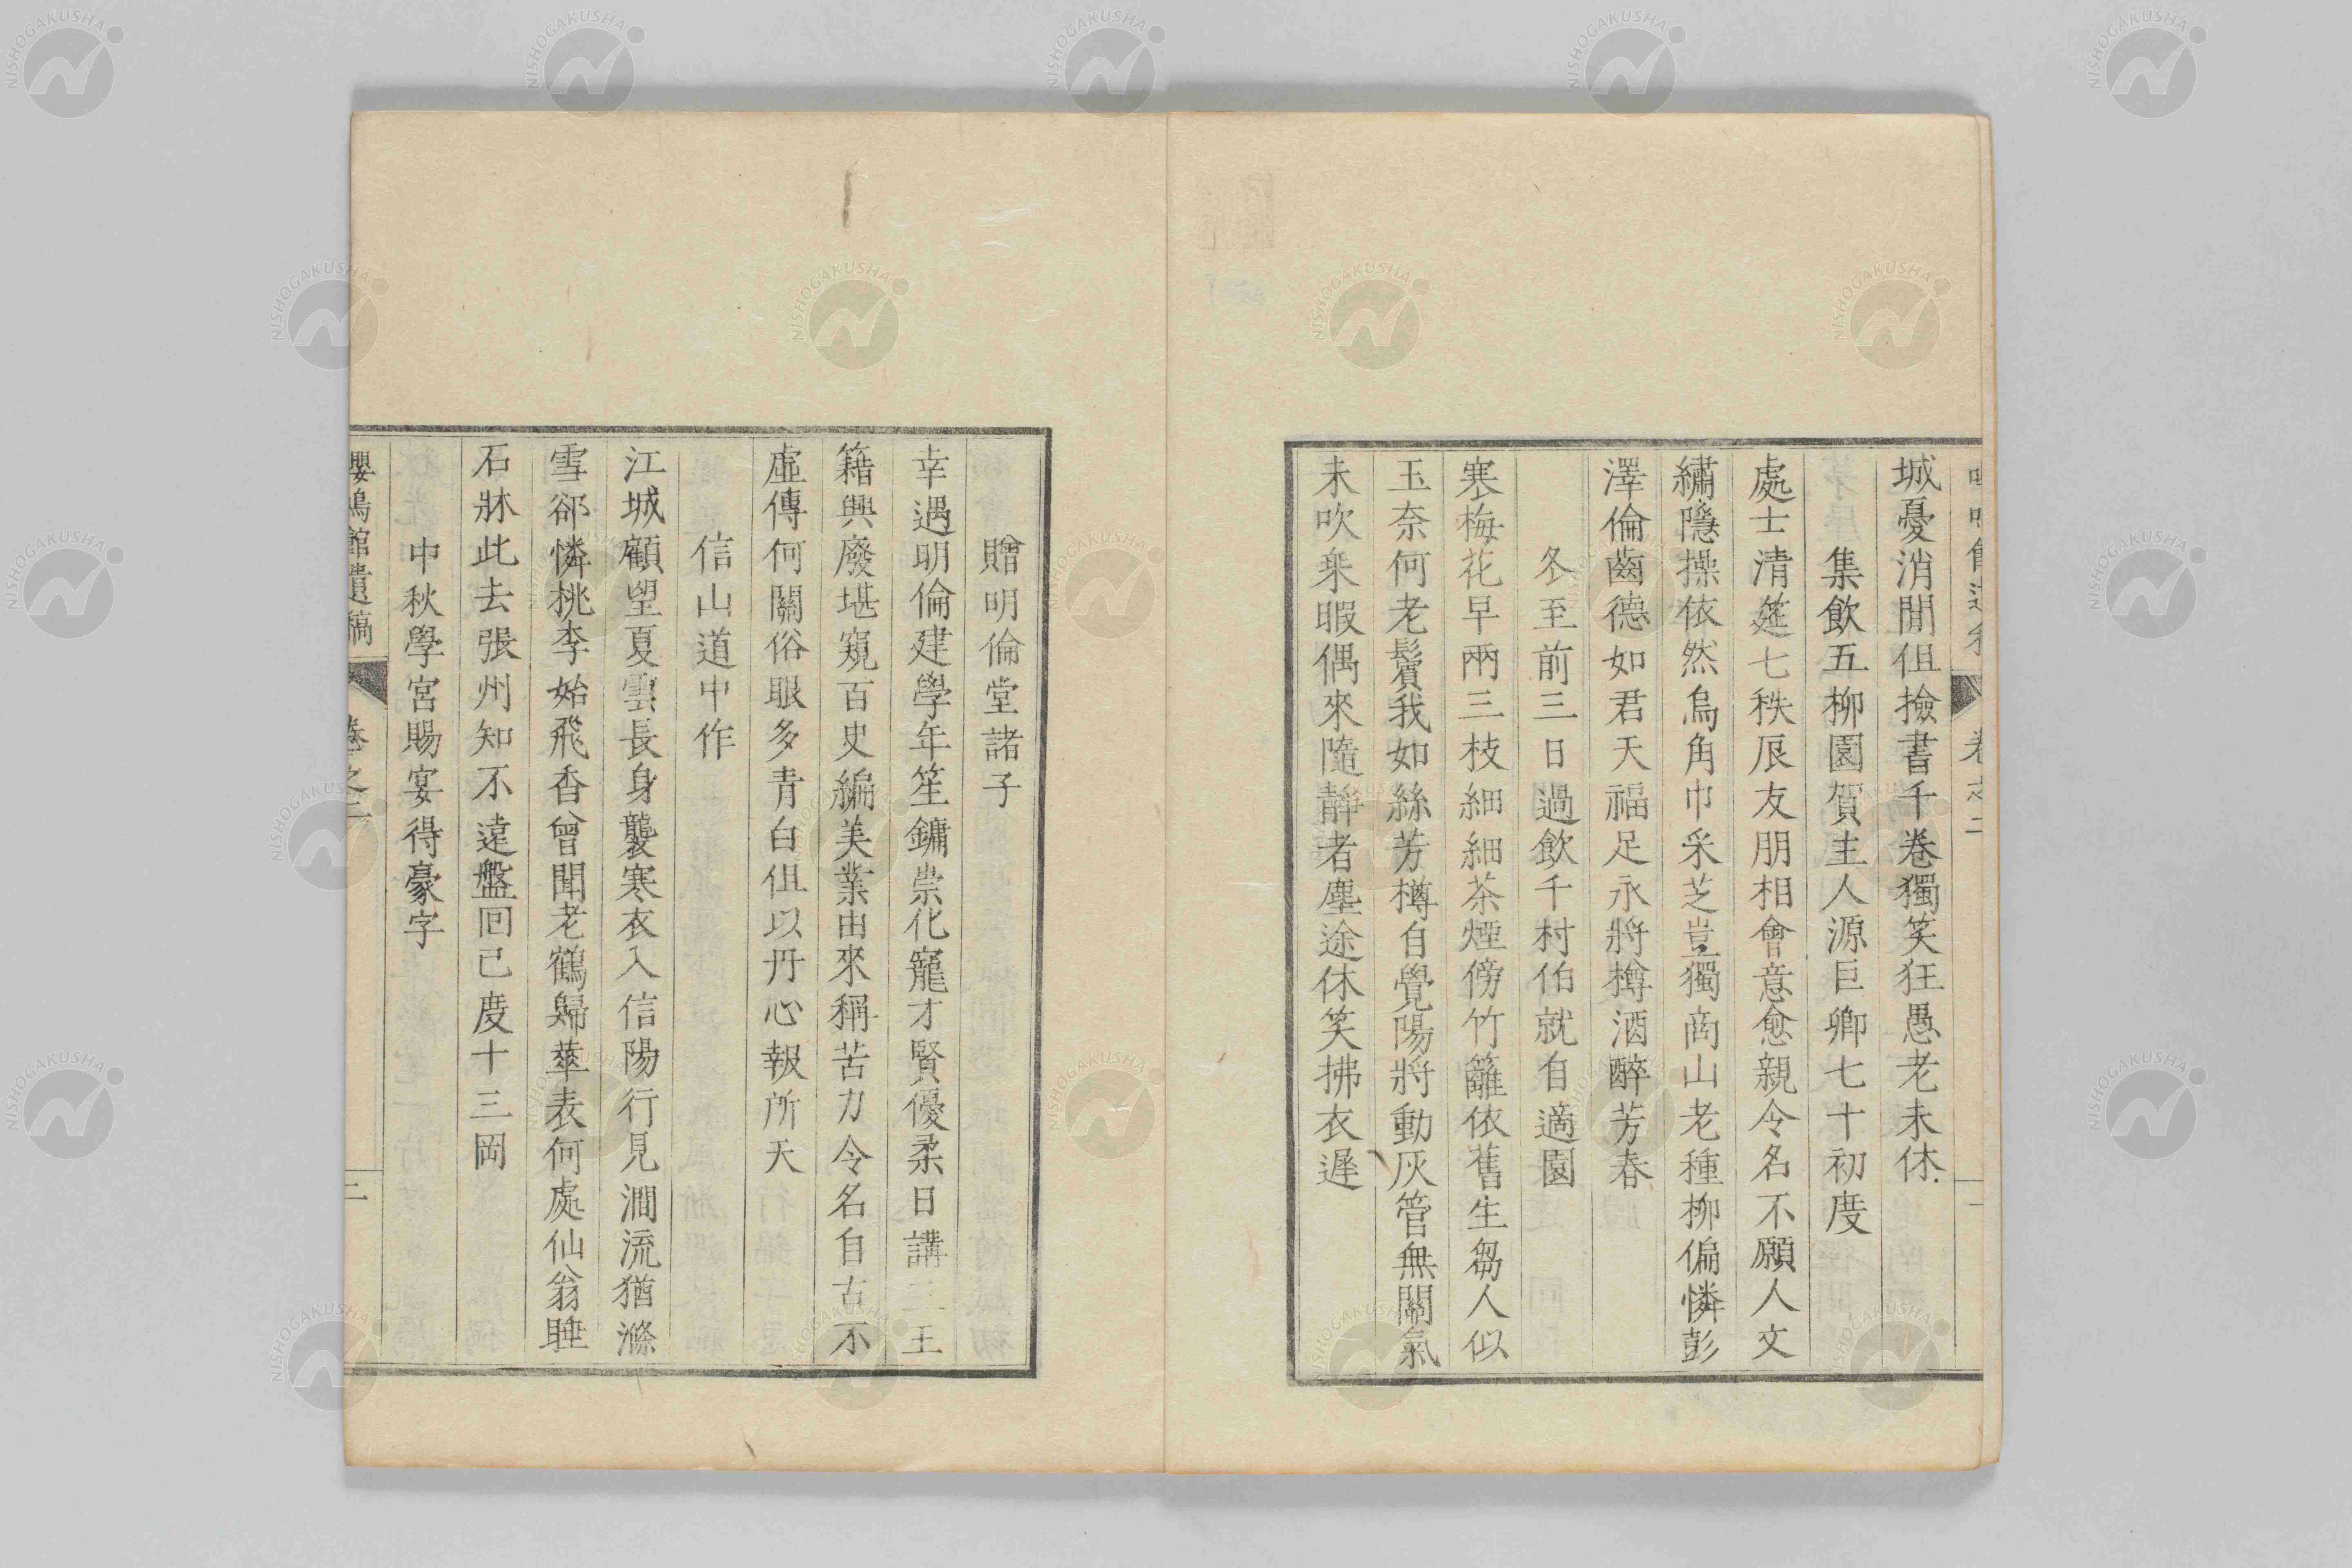 城憂消閒但撿書千卷獨笑狂愚老未休
集飲五柳園賀主人源巨卿七十初度
處士清筵七秩辰友朋相會意愈親令名不願人文
繡隱操依然烏角巾采芝豈獨商山老種柳偏憐彭
澤倫齒德如君天福足永將樽酒醉芳春
冬至前三日過飲千村伯就自適園
寒梅花早兩三枝細細茶煙傍竹籬依舊生芻人似
玉奈何老鬢我如絲芳樽自覺陽將動灰管無關氣
未吹乘暇偶來隨靜者塵途休笑拂衣遲
贈明倫堂諸子
幸遇明倫建學年笙鏞崇化寵才賢優柔日講二王
籍興廢堪窺百史編美業由來稱苦力令名自古不
虛傳何關俗眼多青白但以丹心報所天
信山道中作
江城顧望夏雲長身襲寒衣入信陽行見澗流猶滌
雪卻憐桃李始飛香曾聞老鶴歸華表何處仙翁睡
石牀此去張州知不遠盤回已度十三岡
中秋學宮賜宴得豪字
嚶鳴館遺稿 卷之二 二